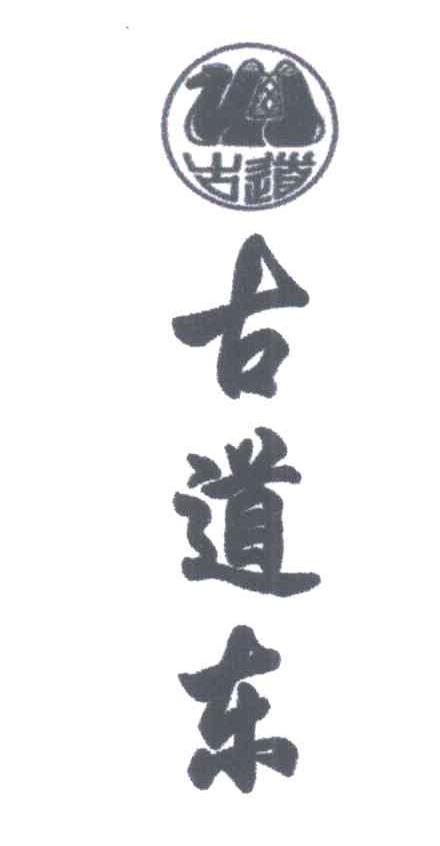 古道
古道东